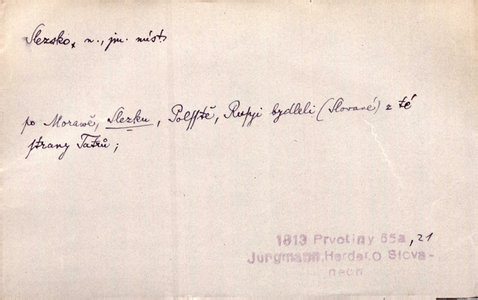 Slezsko, n., jm. míst.
po Morawě, Slezku, Polsstě, Rusyi bydleli (Slované) z té
strany Tatrů;
1813 Prvotiny 65a, 21
Jungmann, Herder o Slova-
nech